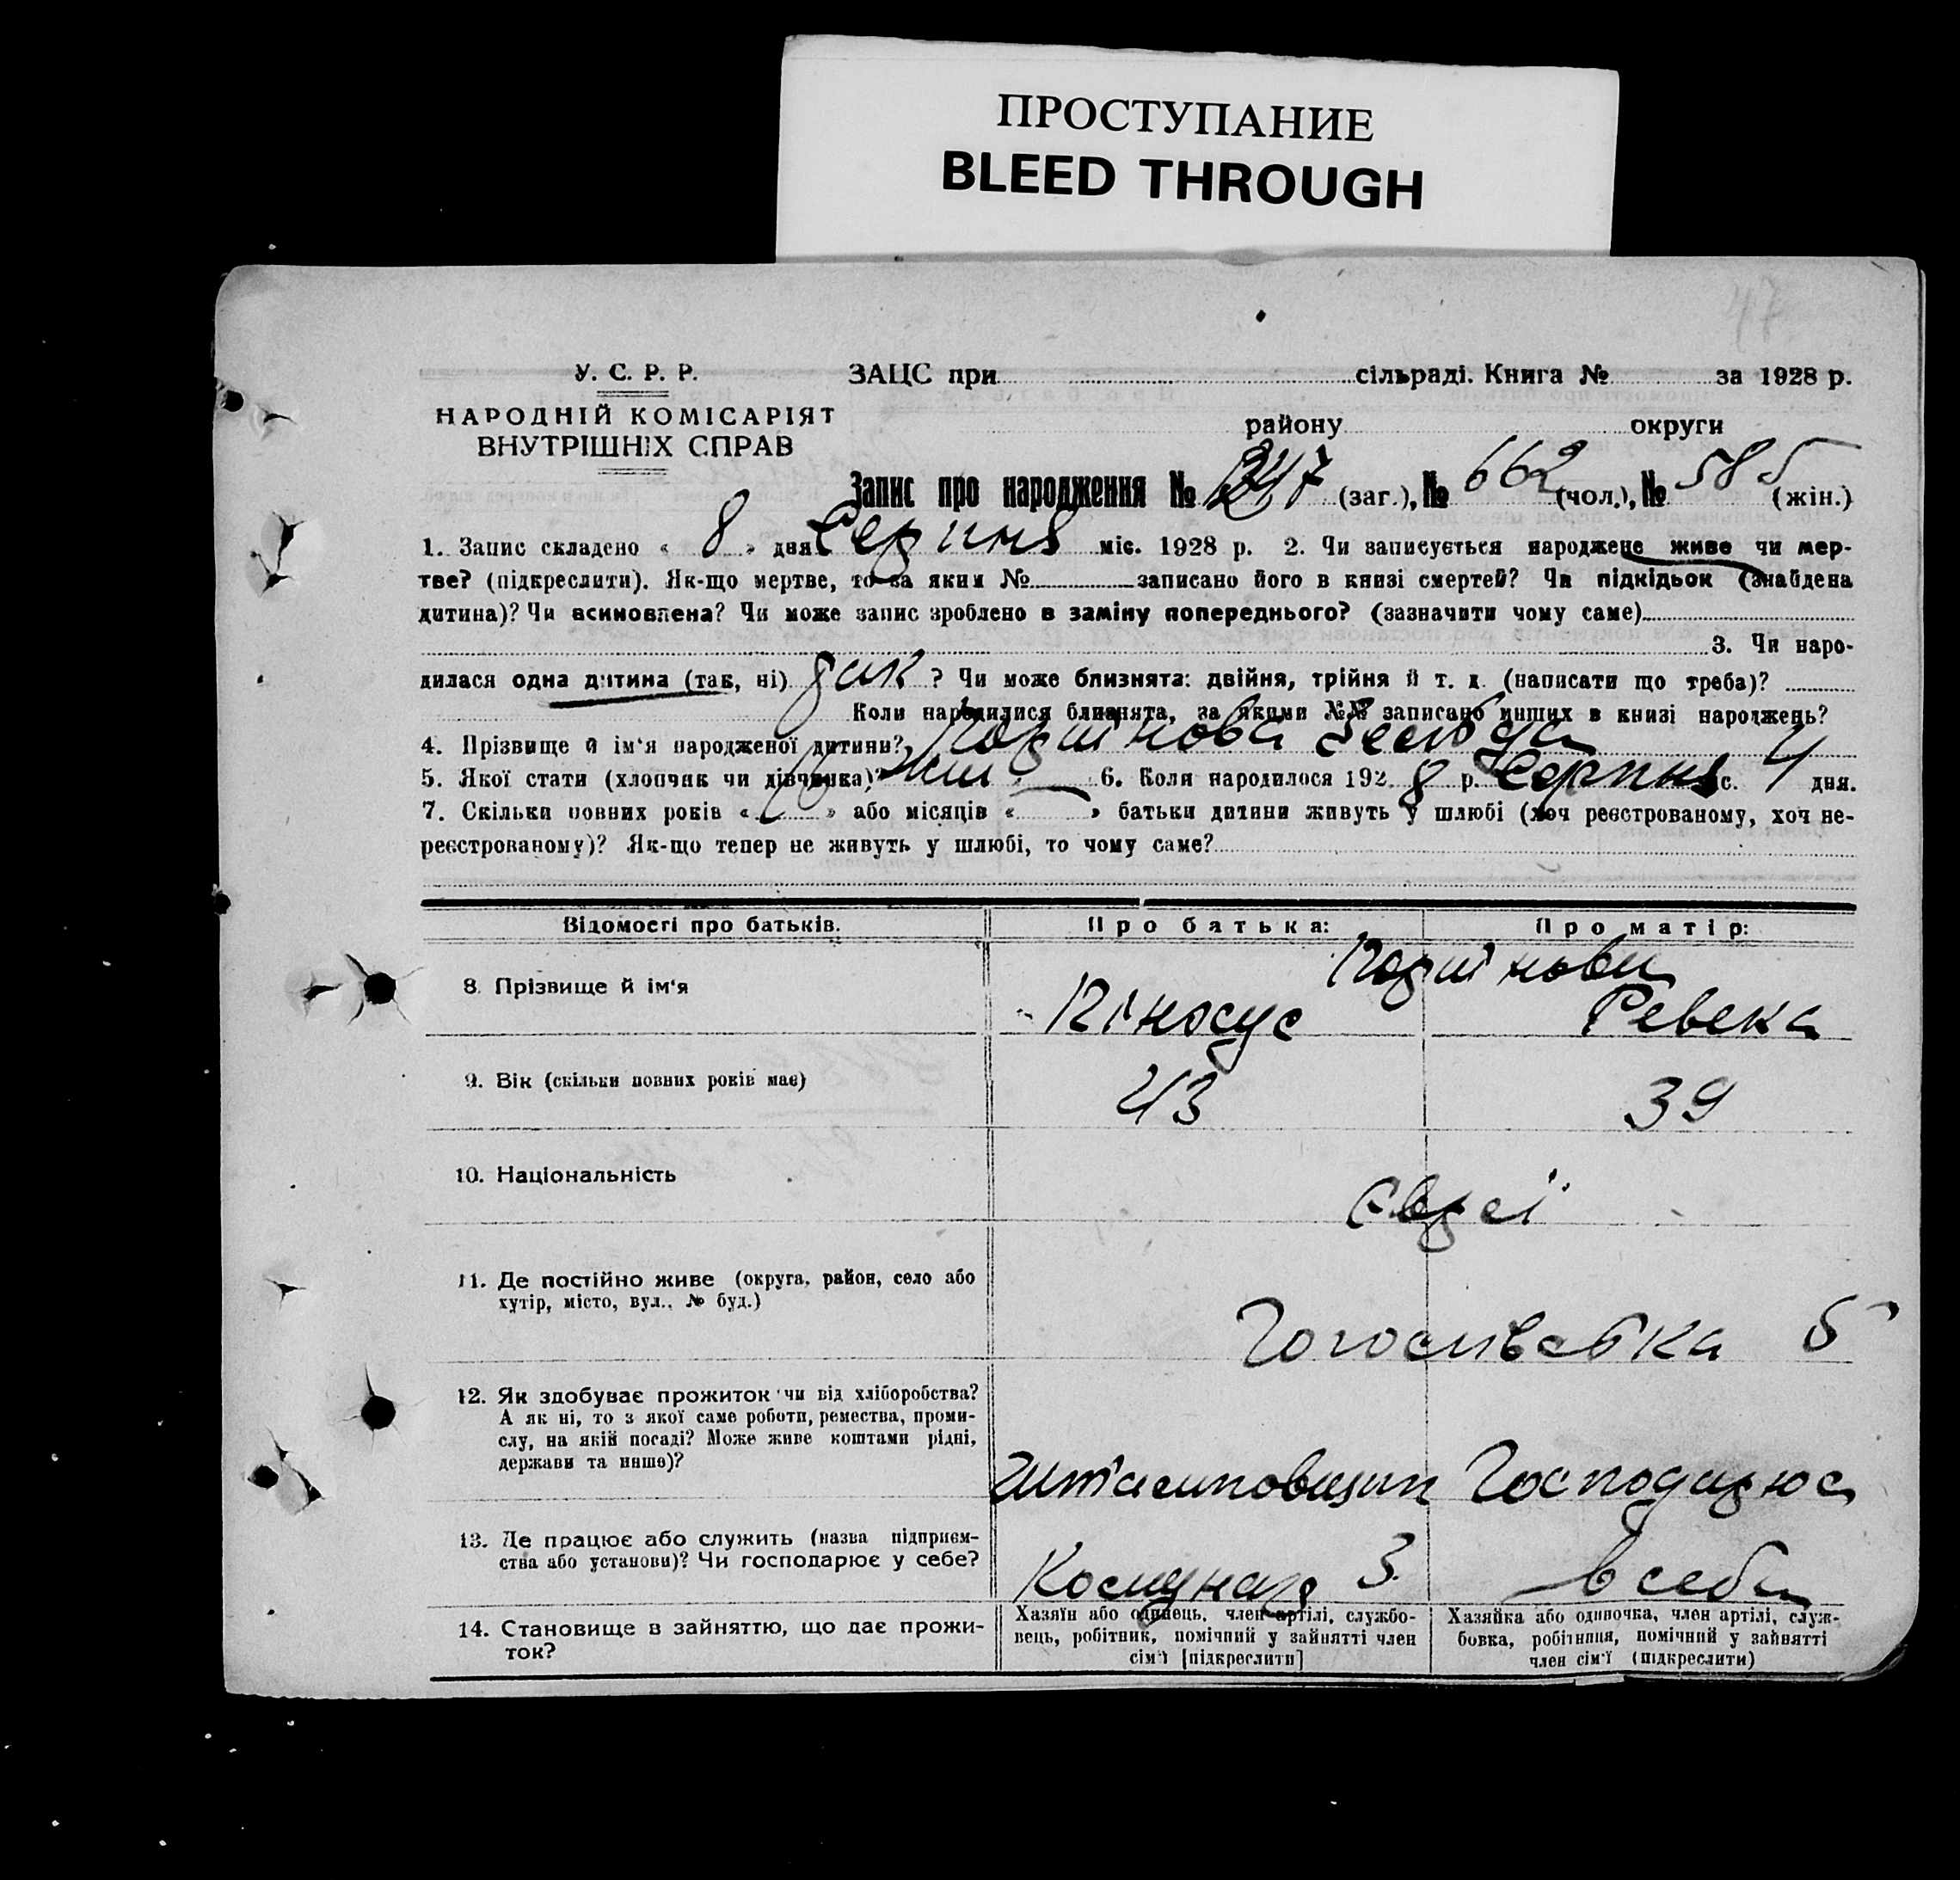 47
ПРОСТУПАНИЕ
BLEED THROUGH
У. С. Р. Р.
НАРОДНІЙ КОМІСАРІЯТ
ВНУТРІШНІХ СПРАВ
ЗАЦС при сільраді. Книга № за 1928 р.
району округи
Запис про народження № 1247 (заг.), № 662 (чол.), № 585 (жін.)
1. Запис складено « 8 » дня Серпня міс. 1928 р. 2. Чи записується народжене живе чи мер-
тве? (підкреслити). Як-що мертве, то за яким № записано його в книзі смертей? Чи підкідьок (знайдена
дитина)? Чи всиновлена? Чи може запис зроблено в заміну попереднього? (зазначити чому саме)
3. Чи наро-
дилася одна дитина (так, ні) так ? Чи може близнята: двійня, трійня й т. д. (написати що треба)?
Коли народилися близнята, за якими №№ записано инших в книзі народжень?
4. Прізвище й ім‘я народженої дитини?
5. Якої стати (хлопчик чи дівчинка)? жін. 6. Коли народилося 1928 р. Серпня с. 4 дня.
7. Скільки повних років « » або місяців « » батьки дитини живуть у шлюбі (хоч реєстрованому, хоч не-
реєстрованому)? Як-що тепер не живуть у шлюбі, то чому саме?
Відомості про батьків. Про батька: Про матір:
8. Прізвище й ім‘я Пінхус Ревека
9. Вік (скільки повних років має) 43 39
10. Національність Євреї
11. Де постійно живе (округа, район, село або
хутір, місто, вул., № буд.) 5
12. Як здобуває прожиток чи від хліборобства?
А як ні, то з якої саме роботи, ремества, проми-
слу, на якій посаді? Може живе коштами рідні,
держави та инше)? Штамповщик Господарює
13. Де працює або служить (назва підприєм-
ства або установи)? Чи господарює у себе? Комунар З. в себе
14. Становище в зайняттю, що дає прожи-
ток?
Хазяїн або одинець, член артілі, службо-
вець, робітник, помічний у зайнятті член
сім‘ї [підкреслити]
Хазяйка або одиночка, член артілі, служ-
бовка, робітниця, помічний у зайнятті
член сім‘ї (підкреслити)